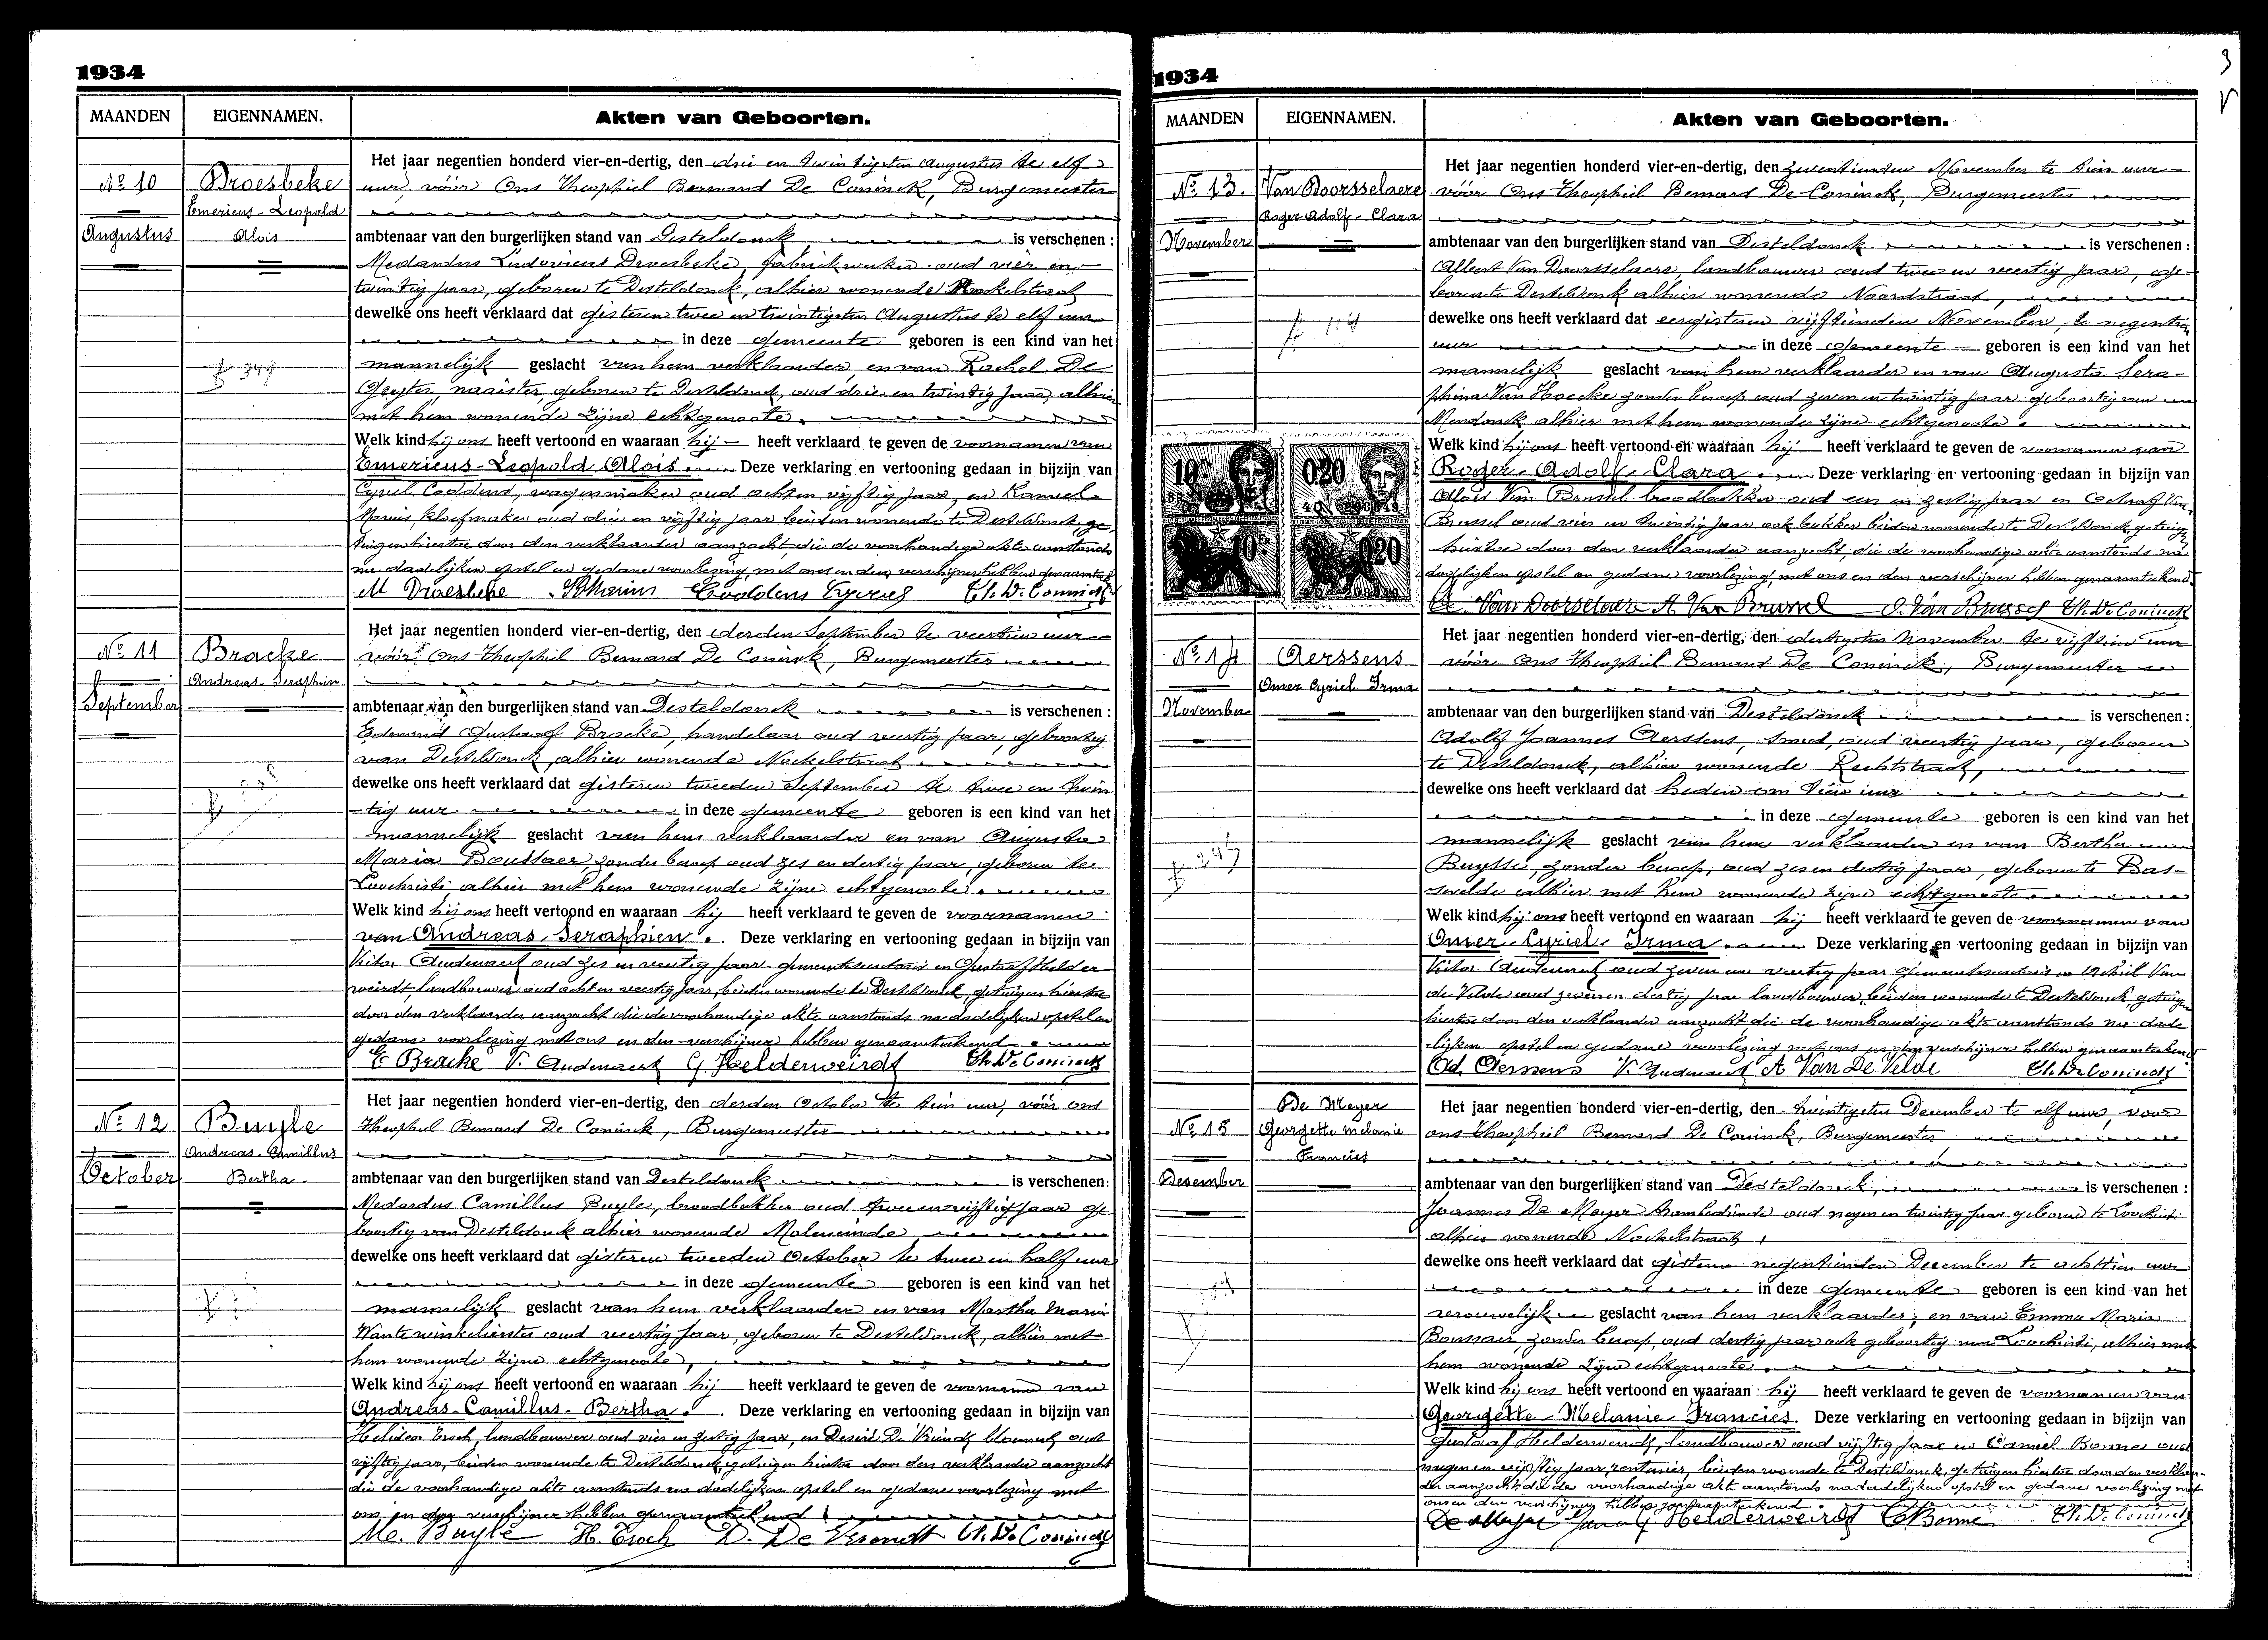 1934
MAANDEN EIGENNAMEN. Akten van Geboorten.
Nº 10
Augustus
Droesbeke
Emericus-Leopold
Alois
Het jaar negentien honderd vier-en-dertig, den drie en twintigsten augustus te elf
uur, vóór Ons Theophiel Bernard De Coninck, Burgemeester
ambtenaar van den burgerlijken stand van Desteldonck is verschenen :
Medardus Ludovicus Droesbeke, fabriekwerker oud vier en
twintig jaar, geboren te Desteldonck, alhier wonende
dewelke ons heeft verklaard dat gisteren twee en twintigsten Augustus te elf uur
in deze gemeente geboren is een kind van het
mannelijk geslacht van hem verklaarder, en van Rachel De
Geyter, naaister, geboren te Desteldonck, oud drie en twintig jaar, alhier
met hem wonende zijne echtgenoote.
Welk kind hij ons heeft vertoond en waaraan hij heeft verklaard te geven de voornamen van
Emericus-Leopold Alois. Deze verklaring en vertooning gedaan in bijzijn van
Cyriel Coddens, wagenmaker oud acht en vijftig jaar, en Kamiel
Mariis, kloefmaker oud drie en vijftig jaar beiden wonende te Desteldonck, ge
tuigen hiertoe door den verklaarder aanzocht die de voorhandige akte aanstonds
na dadelijken opstel en gedane voorlezing, met ons en den verschijner hebben genaamteekend
M Droesbeke Coddens Cyriel Th. De Coninck
Nº 11
September
Bracke
Andreas-Seraphin
Het jaar negentien honderd vier-en-dertig, den derden September te veertien uur
vóór Ons Theophiel Bernard De Coninck, Burgemeester
ambtenaar van den burgerlijken stand van Desteldonck is verschenen :
Edmond Gustaaf Bracke, handelaar oud veertig jaar, geboortig
van Desteldonck, alhier wonende Nockelstraat
dewelke ons heeft verklaard dat gisteren tweeden September te twee en twin
tig uur in deze gemeente geboren is een kind van het
mannelijk geslacht van hem verklaarder en van Augusta
Maria Boussaer, zonder beroep oud zes en dertig jaar, geboren te
Loochristi alhier met hem wonende zijne echtgenoote.
Welk kind hij ons heeft vertoond en waaraan hij heeft verklaard te geven de voornamen
van Andreas Seraphien. Deze verklaring en vertooning gedaan in bijzijn van
Victor Audenaert oud zes en veertig jaar gemeentesecretaris en Gustaaf Helder
weirdt, landbouwer oud acht en veertig jaar, beiden wonende te Desteldonck, getuigen hiertoe
door den verklaarder aanzocht die de voorhandige akte aanstonds na dadelijken opstel en
gedane voorlezing met ons en den verschijner hebben genaamteekend
E Bracke V. Audenaert G. Helderweirdt Th. De Coninck
Nº 12
October
Buyle
Andreas-Camillus
Bertha
Het jaar negentien honderd vier-en-dertig, den derden October te tien uur, vóór ons
Theophiel Bernard De Coninck, Burgemeester
ambtenaar van den burgerlijken stand van Desteldonck is verschenen:
Medardus Camillus Buyle, broodbakker oud twee en vijftig jaar ge
boortig van Desteldonck alhier wonende Moleneinde
dewelke ons heeft verklaard dat gisteren tweeden October te twee en half uur
in deze gemeente geboren is een kind van het
mannelijk geslacht van hem verklaarder en van Martha Maria
Wante winkelierster oud veertig jaar, geboren te Desteldonck, alhier met
hem wonende zijne echtgenoote,
Welk kind hij ons heeft vertoond en waaraan hij heeft verklaard te geven de voornamen van
Andreas-Camillus-Bertha. Deze verklaring en vertooning gedaan in bijzijn van
landbouwer oud vier en zestig jaar, en Desiré De Vriendt oud
vijftig jaar, beiden wonende te Desteldonck, getuigen hiertoe door den verklaarder aanzocht
die de voorhandige akte aanstonds na dadelijken opstel en gedane voorlezing met
ons en den verschijner hebben genaamteekend
Me. Buyle D. De Vriendt Th. De Coninck
1934
MAANDEN EIGENNAMEN. Akten van Geboorten.
Nº 13.
November
Van Doorsselaere
Roger Adolf-Clara
Het jaar negentien honderd vier-en-dertig, den zeventienden November te tien uur
vóór Ons Theophiel Bernard De Coninck, Burgemeester
ambtenaar van den burgerlijken stand van Desteldonck is verschenen :
Albert Van Doorsselaere, landbouwer oud twee en veertig jaar, ge-
boren te Desteldonk alhier wonende Noordstraat,
dewelke ons heeft verklaard dat eergisteren vijftienden November, te negentien
uur in deze gemeente geboren is een kind van het
mannelijk geslacht van hem verklaarder en van Augusta Sera-
phina Van Hoecke zonder beroep oud zeven en twintig jaar geboortig van
Mendonck alhier met hem wonende zijne echtgenoote.
Welk kind hij ons heeft vertoond en waaraan hij heeft verklaard te geven de voornamen van
Roger-Adolf-Clara. Deze verklaring en vertooning gedaan in bijzijn van
Aloïs Van Brussel broodbakker oud een en zestig jaar en Octaaf Van
Brussel oud vier en twintig jaar ook bakker beiden wonende te Desteldonck, getuigen
hiertoe door den verklaarder aanzocht, die de voorhandige akte aanstonds na
dadelijken opstel en gedane voorlezing met ons en den verschijner hebben genaamteekend
A. Van Doorselaere A. Van Brussel O. Van Brussel Th. De Coninck
Nº 14
November
Aerssens
Omer Cyriel Irma
Het jaar negentien honderd vier-en-dertig, den dertigsten november te vijftien uur
vóór Ons Theophiel Bernard De Coninck, Burgemeester
ambtenaar van den burgerlijken stand van Desteldonck is verschenen :
Adolf Joannes Aerssens, smid, oud veertig jaar, geboren
te Desteldonck, alhier wonende Rechtstraat,
dewelke ons heeft verklaard dat heden om uur
in deze gemeente geboren is een kind van het
mannelijk geslacht van hem verklaarder en van Bertha
Buysse, zonder beroep, oud zes en dertig jaar, geboren te Bas-
sevelde alhier met hem wonende zijne echtgenoote.
Welk kind hij ons heeft vertoond en waaraan hij heeft verklaard te geven de voornamen van
Omer-Cyriel-Irma. Deze verklaring en vertooning gedaan in bijzijn van
Victor Audenaert oud zeven en veertig jaar gemeentesecretaris en Achiel Van
de Velde oud zeven en dertig jaar landbouwer, beiden wonende te Desteldonck getuigen
hiertoe door den verklaarder aanzocht die de voorhandige akte aanstonds na dade
lijken opstel en gedane voorlezing met ons en den verschijner hebben genaamteekend
Ad. Aerssens V. Audenaert A Van De Velde Th. De Coninck
Nº 15
Desember
De Meyer
Georgette Melanie
Francies
Het jaar negentien honderd vier-en-dertig, den twintigsten December te elf uur, voor
ons Theophiel Bernard De Coninck, Burgemeester
ambtenaar van den burgerlijken stand van Desteldonck, is verschenen :
Joannes De Meyer trambediende oud negen en twintig jaar geboren te Loochristi
alhier wonende Nockelstraat,
dewelke ons heeft verklaard dat gisteren negentienden December te achttien uur
in deze gemeente geboren is een kind van het
vrouwelijk geslacht van hem verklaarder, en van Emma Maria
Boussaer, zonder beroep, oud dertig jaar ook geboortig van Loochristi, alhier met
hem wonende zijne echtgenoote.
Welk kind hij ons heeft vertoond en waaraan hij heeft verklaard te geven de voornamen van
Georgette-Melanie-Francies. Deze verklaring en vertooning gedaan in bijzijn van
Gustaaf Helderweirdt, landbouwer oud vijftig jaar en Camiel Bonne oud
negen en vijftig jaar, rentenier, beiden wonende te Desteldonck, getuigen hiertoe door den verklaar-
der aanzocht die de voorhandige akte aanstonds na dadelijken opstel en gedane voorlezing met
ons en den verschijner hebben genaamteekend.
De Meyer G Helderweirdt C Bonne Th. De Coninck